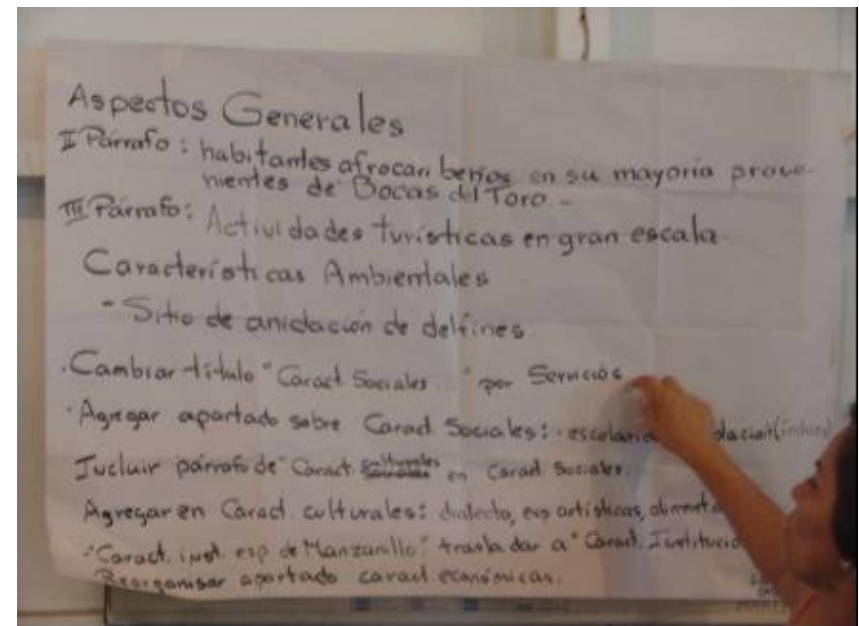 Aspectos Generales
II Párrafo: habitantes afrocaribeños en su mayoría prove-
nientes de Bocas del Toro -
III Párrafo: Actividades turísticas en gran escala
Características Ambientales
- Sitio de anidación de delfines.
· Cambiar título "Caract. Sociales ..." por Servicios
· Agregar apartado sobre Caract Sociales: · escolari
Incluir párrafo de "Caract. en Caract Sociales.
Agregar en Caract. culturales: dialecto, exp artísticas, aliment
"Caract. inst. esp de Manzanillo" trasladar a "Caract. Institucio
Reorganizar apartado caract. económicas.